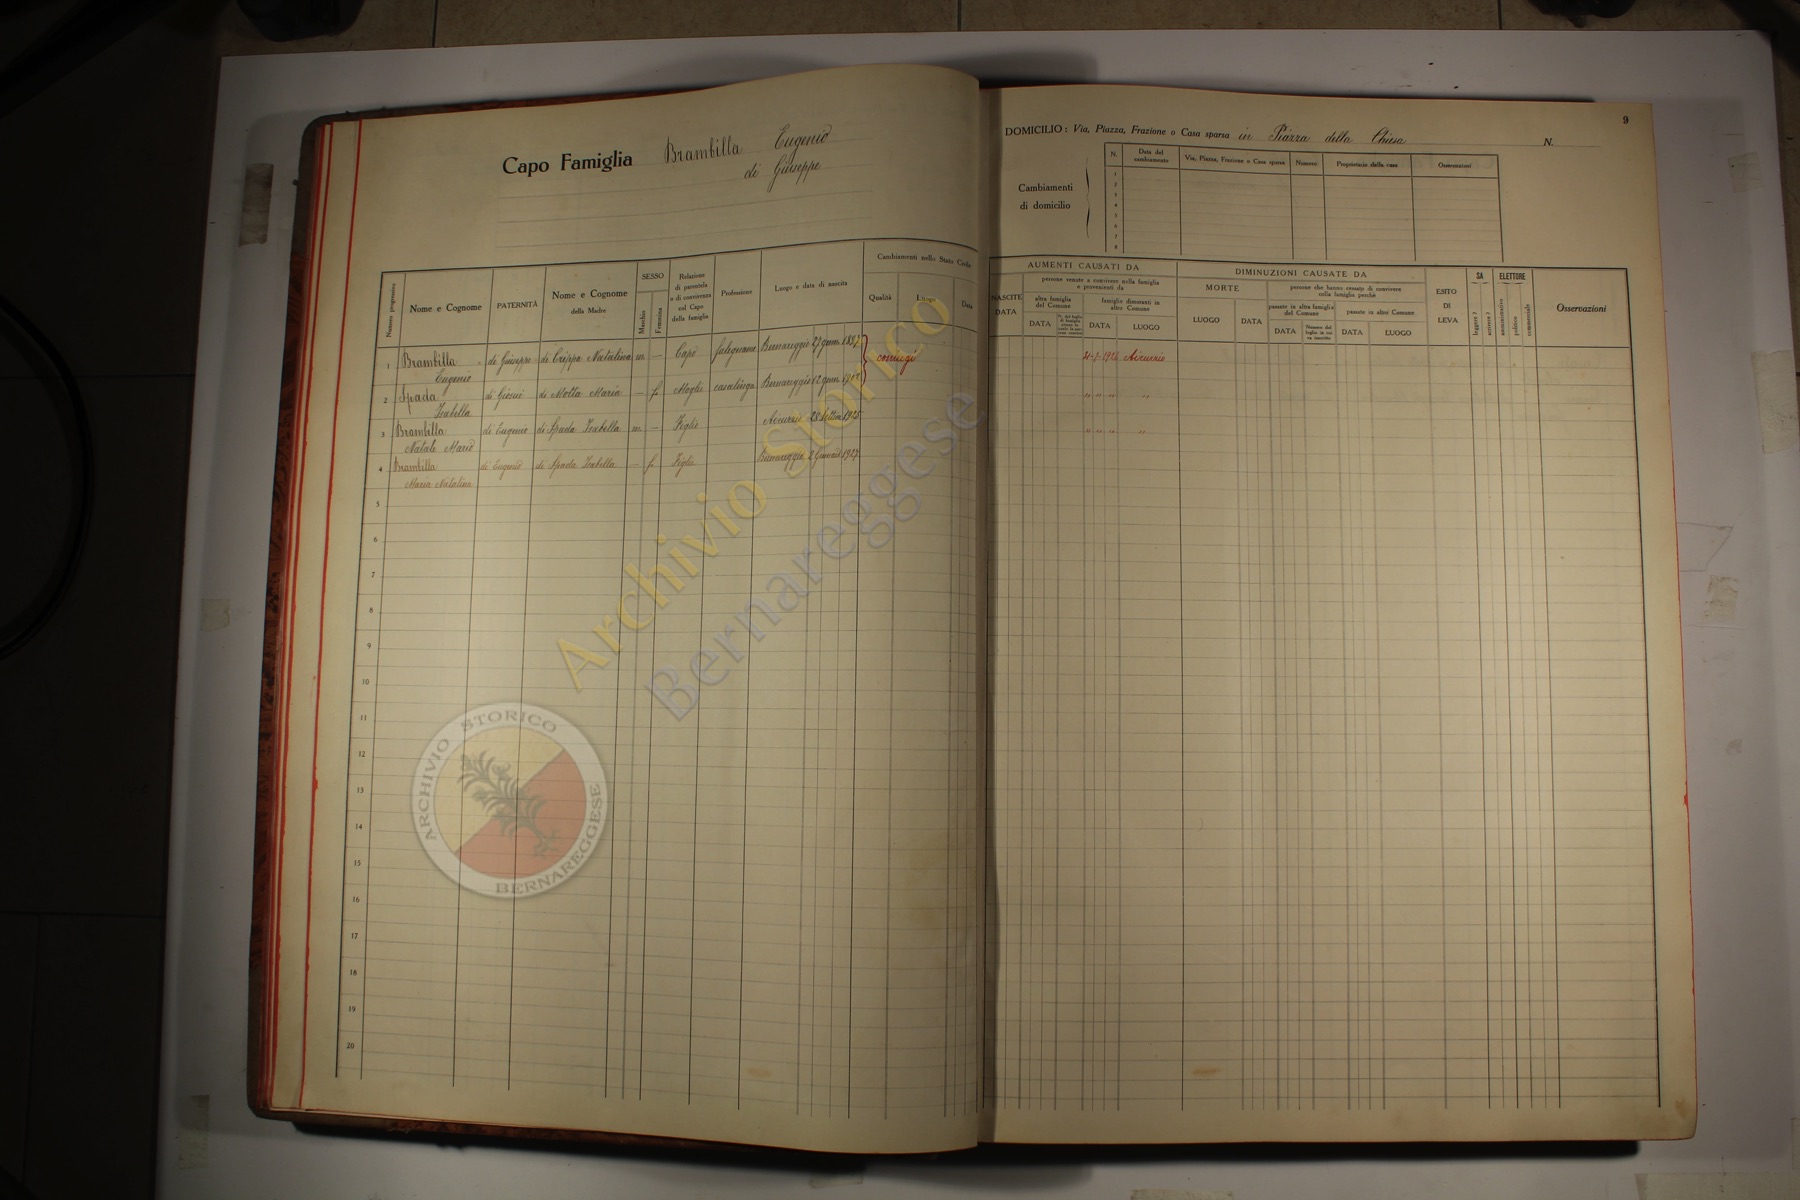 Capo Famiglia Brambilla Eugenio
di Giuseppe
Numero progressivo
Nome e Cognome
PATERNITÀ
Nome e Cognome
della Madre
SESSO
Maschio
Femmina
Relazione
di parentela
o di convivenza
col Capo
della famiglia
Professione
Luogo e data di nascita
Cambiamenti nello Stato Civile
Qualità
Luogo
Data
1 Brambilla di Giuseppe di Crippa Natalina m. — Capo falegname Bernareggio 27 genn. 1897 coniugi
Eugenio
2 Spada di Giosuè di Motta Maria — f. Moglie casalinga Bernareggio 12 genn.
Isabella
3 Brambilla di Eugenio di Spada Isabella m. — Figlio Aicurzio 28 Settem 1925
Natale Mario
4 Brambilla di Eugenio di Spada Isabella — f. Figlia Bernareggio 2 Gennaio 1927
Maria Natalina
5
6
7
8
9
10
11
12
13
14
15
16
17
18
19
20
9
DOMICILIO: Via, Piazza, Frazione o Casa sparsa in Piazza della Chiesa N.
Cambiamenti
di domicilio
N.
Data del
cambiamento
Via, Piazza, Frazione o Casa sparsa
Numero
Proprietario della casa
Osservazioni
1
2
3
4
5
6
7
8
AUMENTI CAUSATI DA
NASCITE
DATA
persone venute a convivere nella famiglia
e provenienti da
altra famiglia
del Comune
DATA
famiglie dimoranti in
altro Comune
DATA
LUOGO
DIMINUZIONI CAUSATE DA
MORTE
LUOGO
DATA
persone che hanno cessato di convivere
nella famiglia perchè
passate in altra famiglia
del Comune
DATA
Numero del
foglio in cui
va inscritto
passate in altro Comune
DATA
LUOGO
ESITO
DI
LEVA
SA
leggere?
scrivere?
ELETTORE
amministrativo
politico
commerciale
Osservazioni
1926 Aicurzio
" " " "
" " " "
Archivio Storico
Bernareggese
ARCHIVIO STORICO
BERNAREGGESE